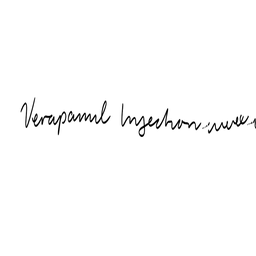 Verapamil Injection